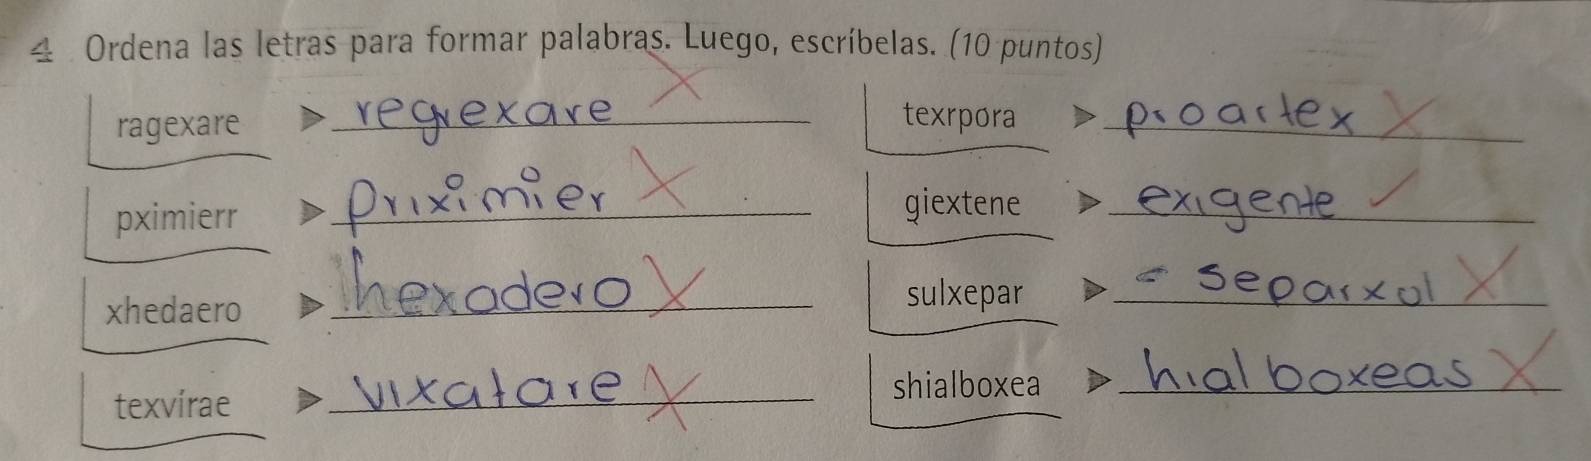 4 Ordena las letras para formar palabras. Luego, escríbelas. (10 puntos)
ragexare regrexare texrpora proartex
pximierr priximier giextene exigente
xhedaero hexadero sulxepar separxul
texvírae vixatare shialboxea hial boxeas